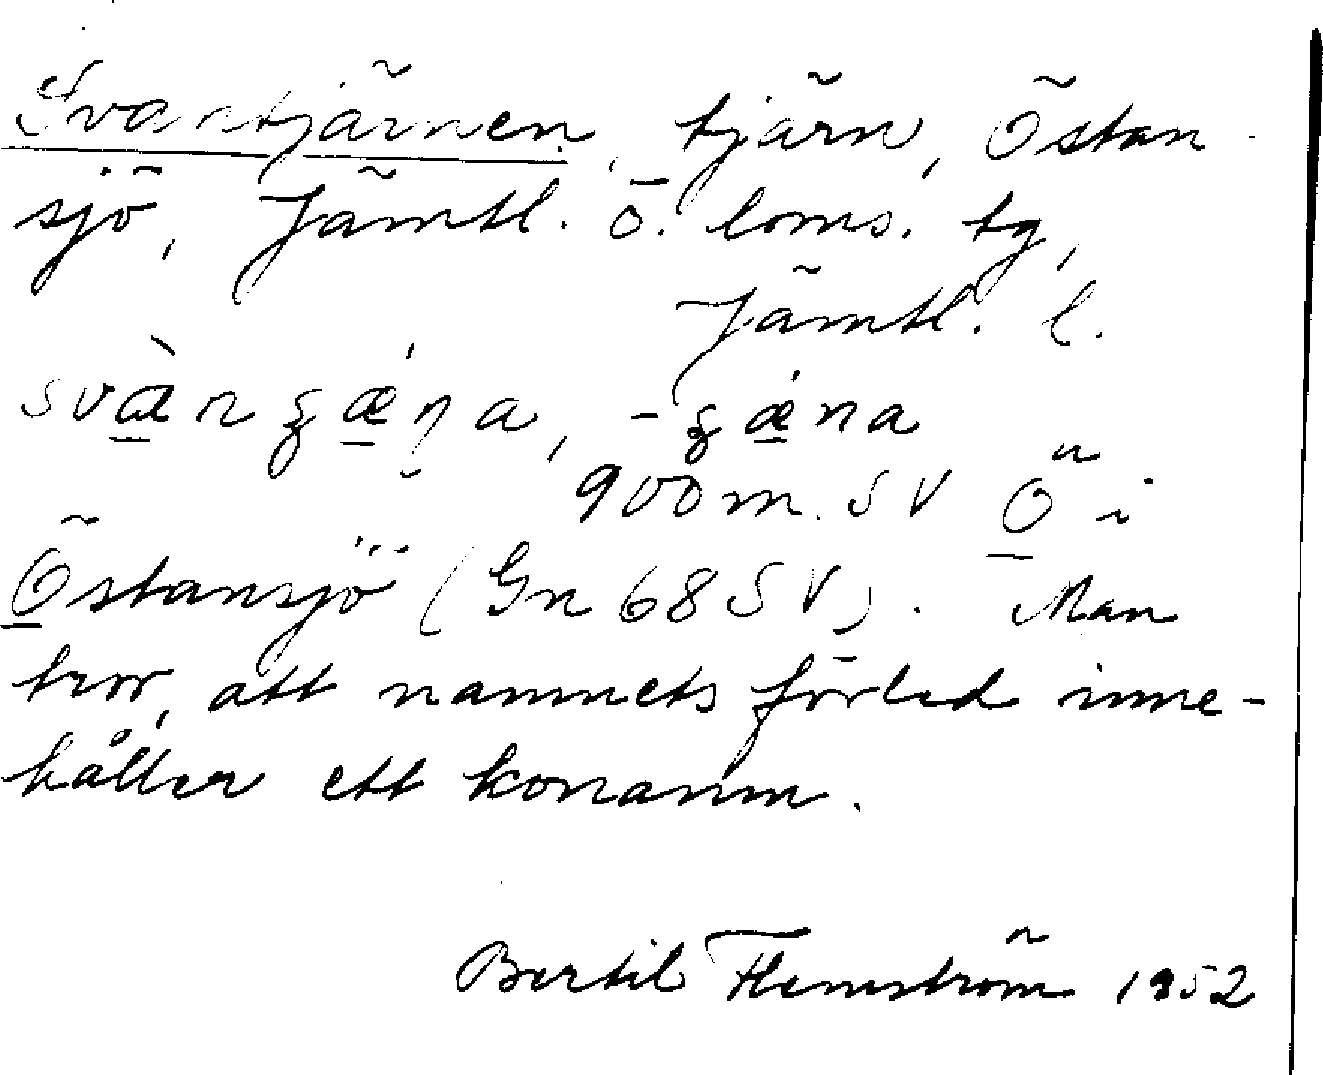 Svantjärnen, tjärn, Östan-
sjö, Jämtl. ö. doms. tg,
Jämtl. l.
900 m. SV Ö i
Östansjö (Gn 68 SV). Man
tror, att namnets förled inne-
håller ett konamn.
Bertil Flemström 1952